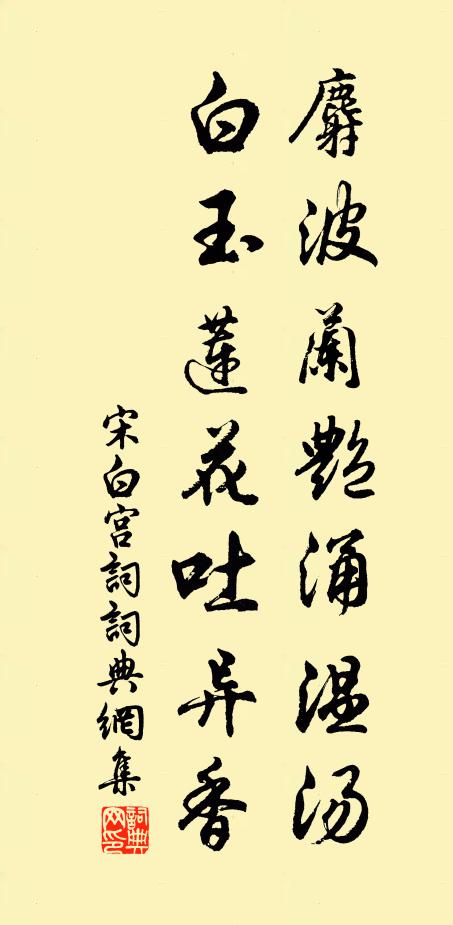 麝波蘭艷涌温汤
白玉蓮花吐异香
宋白宫詞詞典網集
詞典網印